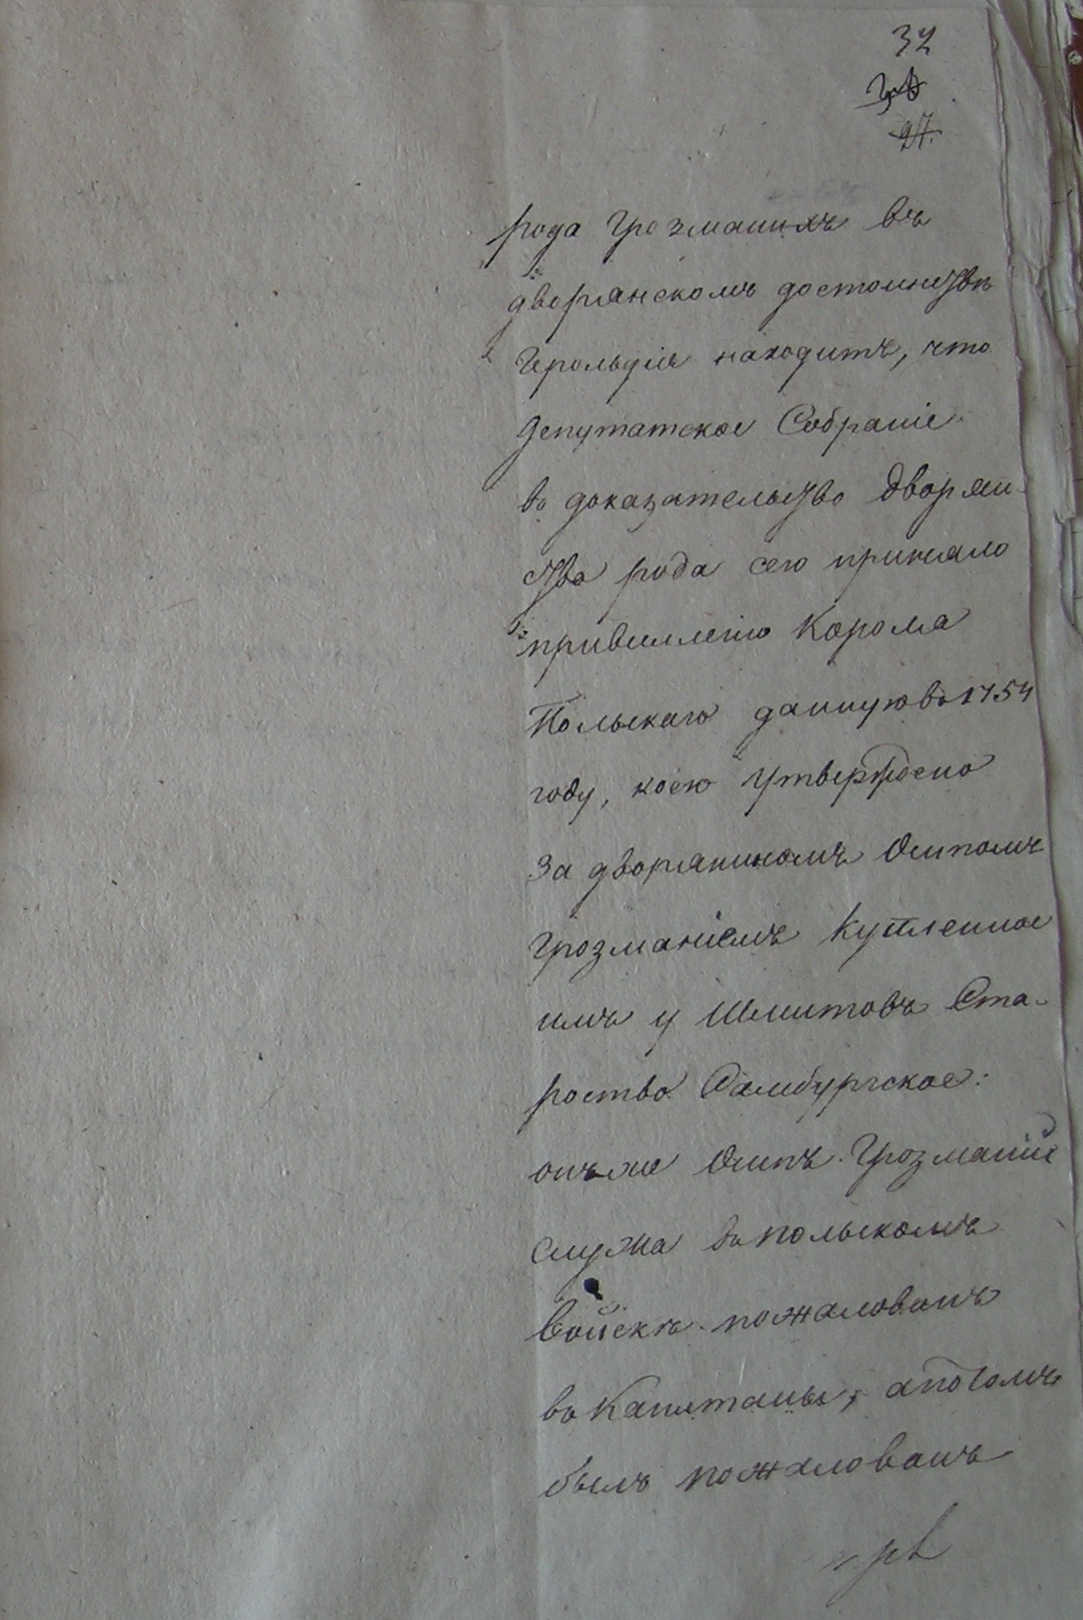 32
27.
рода Грозманихъ въ
дворянскомъ достоинствѣ
Герольдія находитъ, что
Депутатское Собраніе
въ доказательство дворян-
ства рода сего приняло
привиллегію Короля
Польскаго данную въ 1754
году, коею утверждено
за дворяниномъ Осипомъ
Грозманіемъ купленное
имъ у Шмитовъ Ста-
роство Дамбургское:
онъ же Осипъ Грозманій
служа въ польскомъ
войскѣ пожалованъ
въ Капитаны, а потомъ
былъ пожалованъ